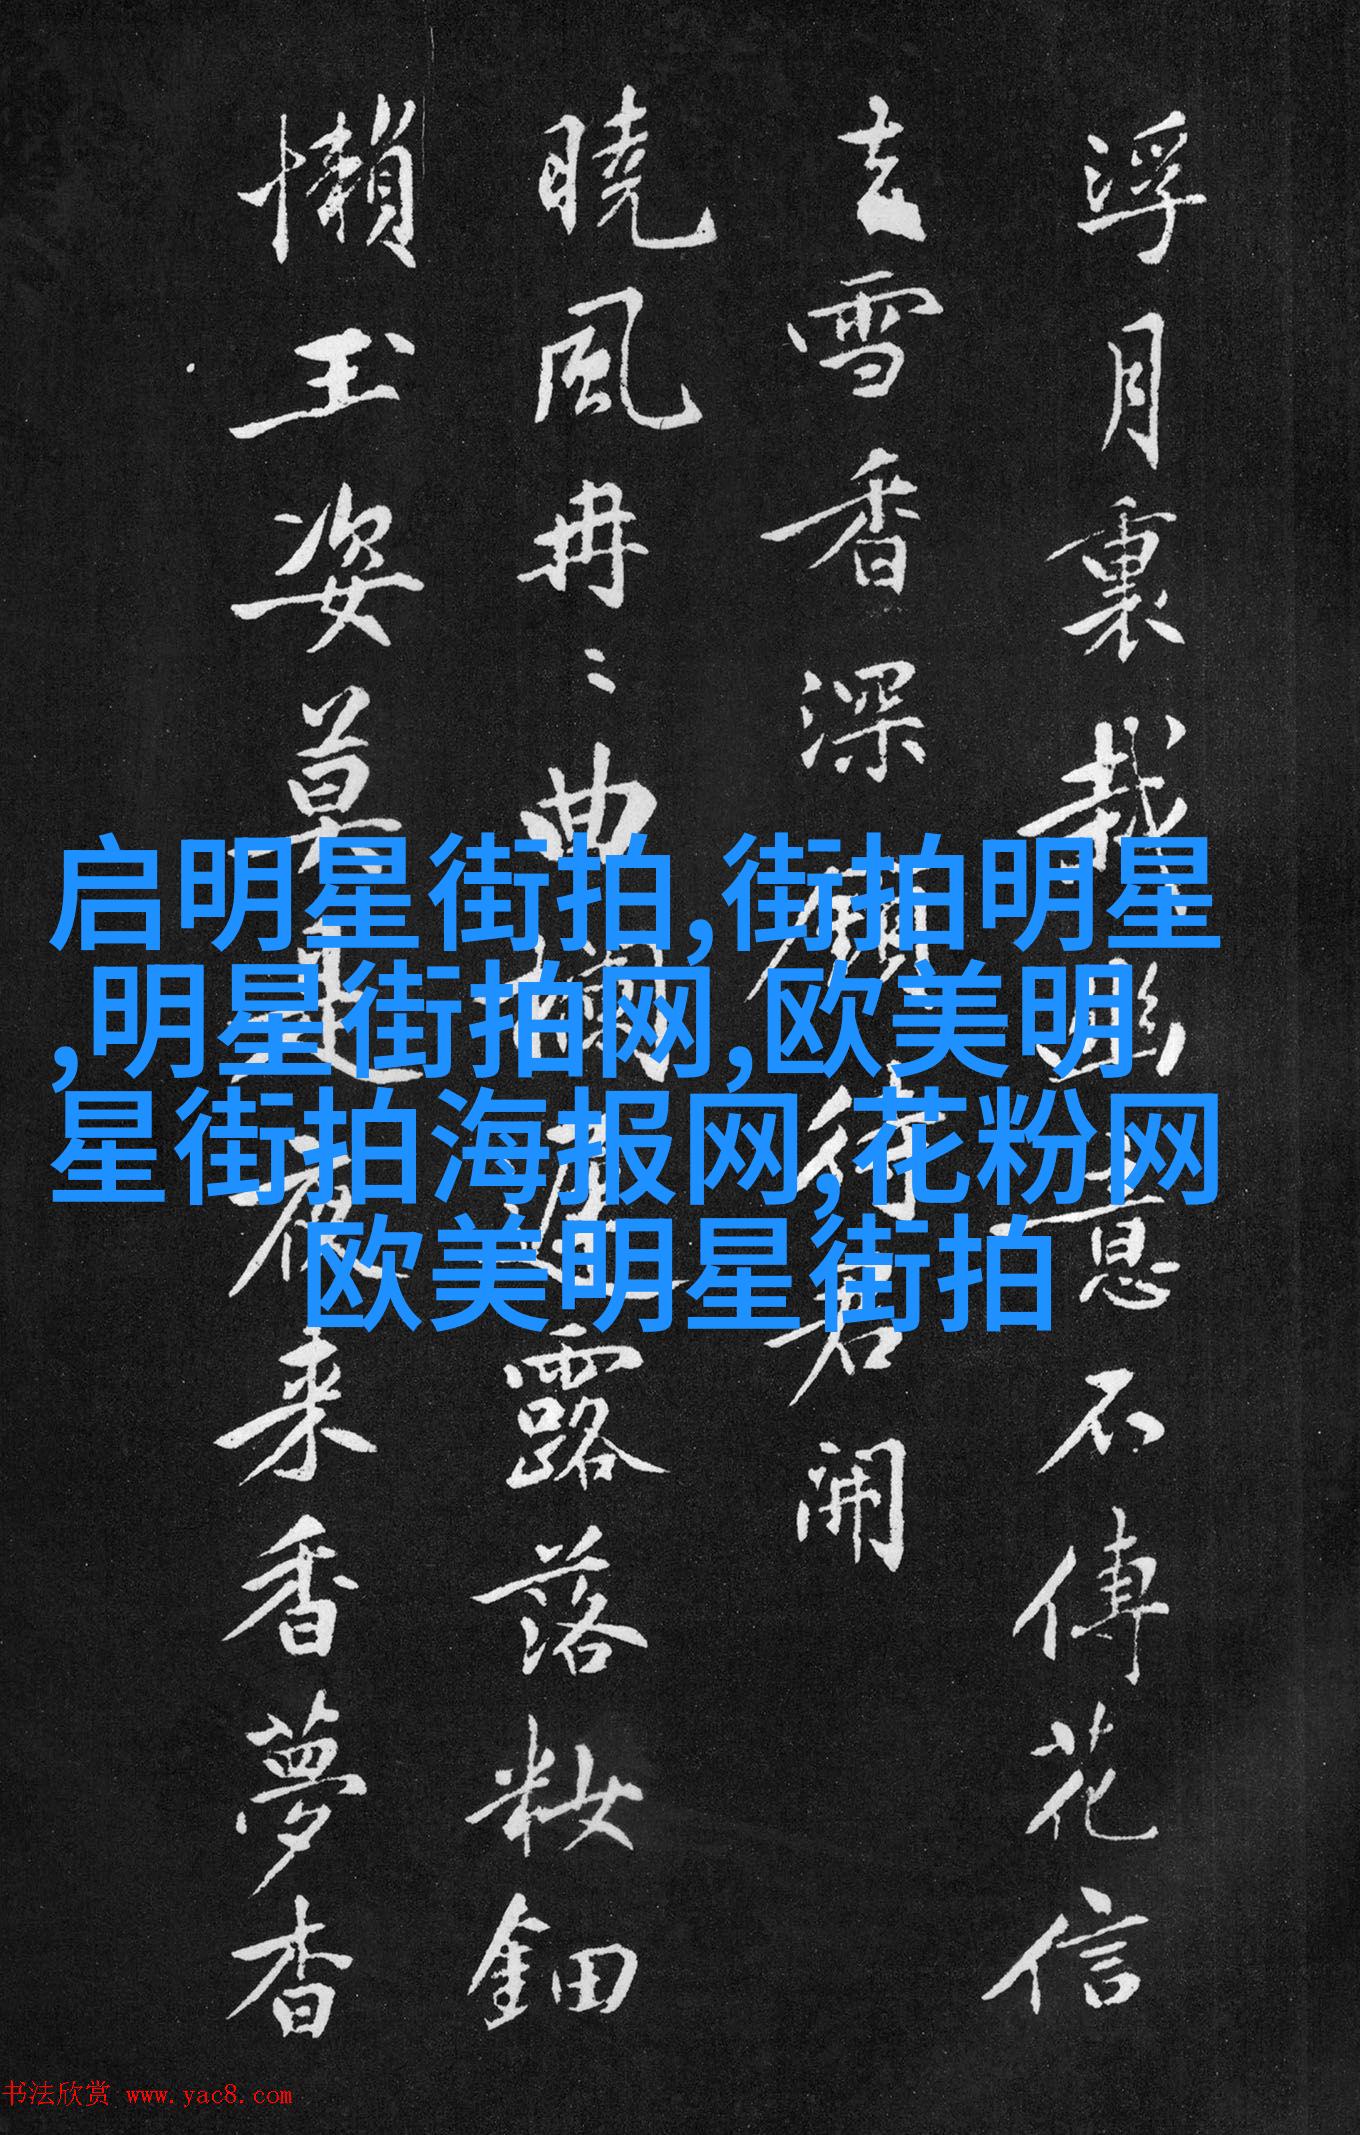 浮月裏栽幽意不傳花信
去雪香深須待君開
曉風冉〻曲欄邊露落粧鈿
懶玉姿莫是夜来香夢杳
启明星街拍,街拍明星
,明星街拍网,欧美明
星街拍海报网,花粉网
欧美明星街拍
书法欣赏 www.yac8.com